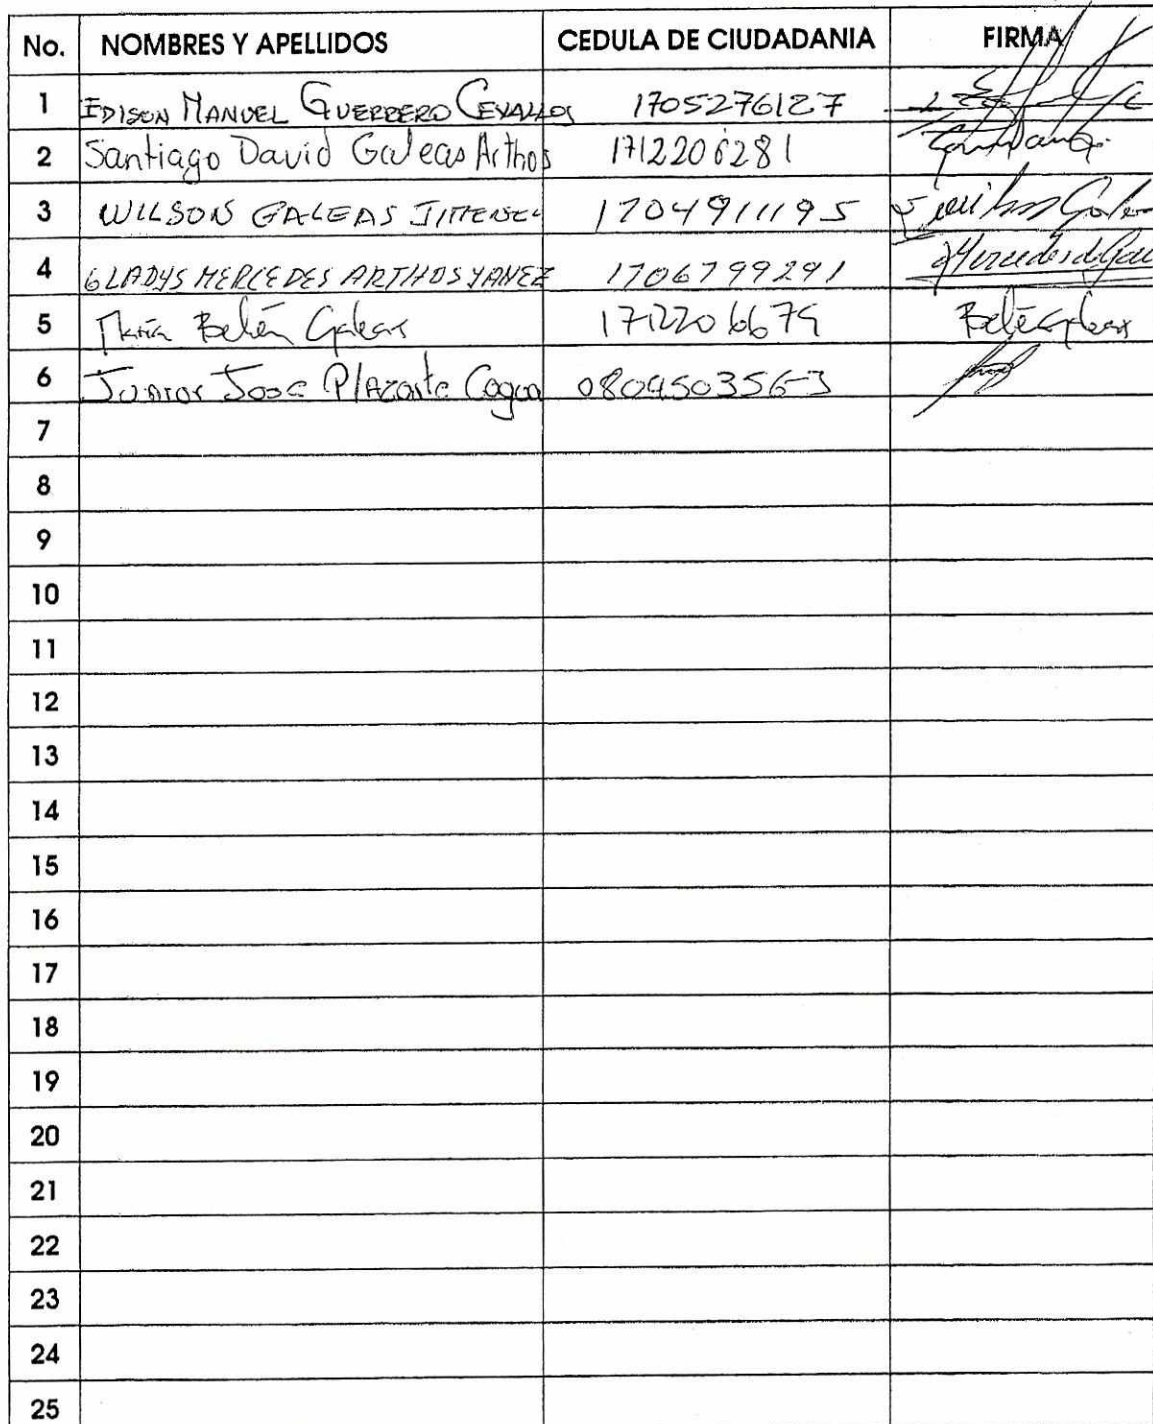 No. NOMBRES Y APELLIDOS CEDULA DE CIUDADANIA FIRMA
1 EDISON MANUEL GUERRERO CEVALLOS 1705276127
2 Santiago David Galeas Arthos 1712206281
3 WILSON GALEAS JIMENEZ 1704911195
4 GLADYS MERCEDES ARTHOS YANEZ 1706799291
5 María Belén Galeas 1712206679 Belén Galeas
6 Junior Jose Plazarte Cagua 080450356-3
7
8
9
10
11
12
13
14
15
16
17
18
19
20
21
22
23
24
25